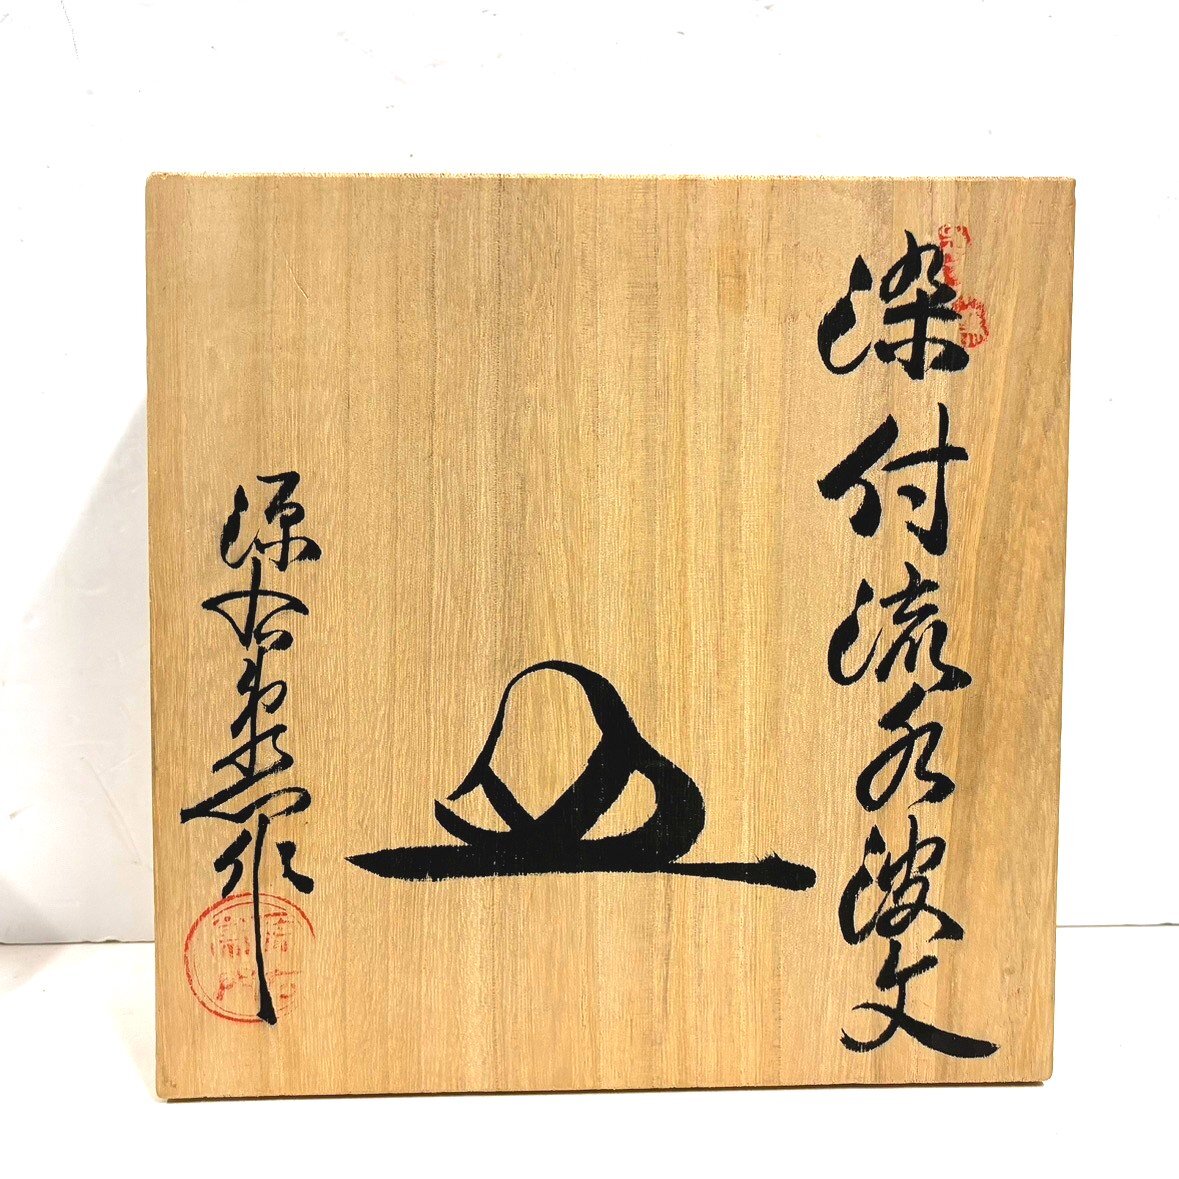 染付流水波文
皿
源右衛門作